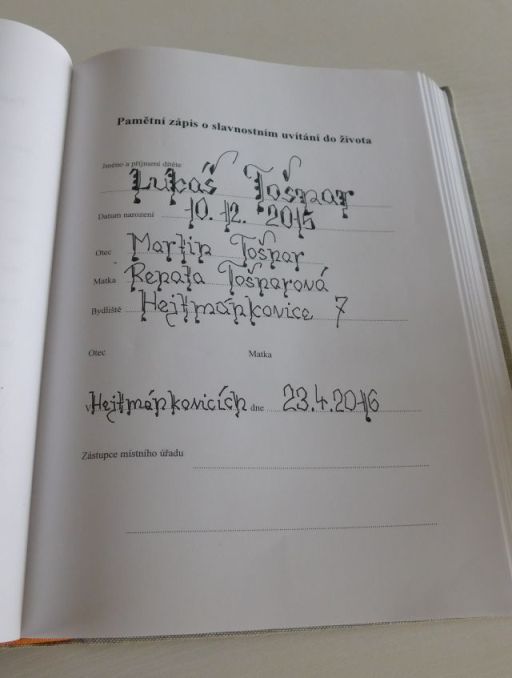 Pamětní zápis o slavnostním uvítání do života
Jméno a příjmení dítěte
Lukáš Tošnar
Datum narození 10. 12. 2015
Otec Martin Tošnar
Matka Renata Tošnarová
Bydliště Hejtmánkovice 7
Otec Matka
v Hejtmánkovicích dne 23.4.2016
Zástupce místního úřadu